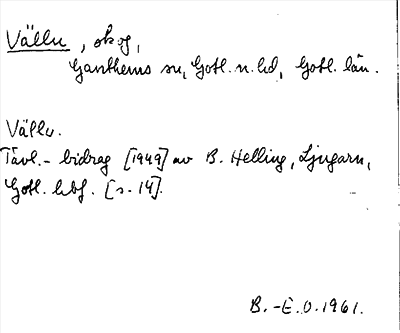 Vällu, skog,
Ganthems sn, Gotl. n. hd, Gotl. län.
Vällu.
Tävl.-bidrag [1949] av B. Helling, Ljugarn,
Gotl. hbf. [s. 14].
B.-E.O. 1961.